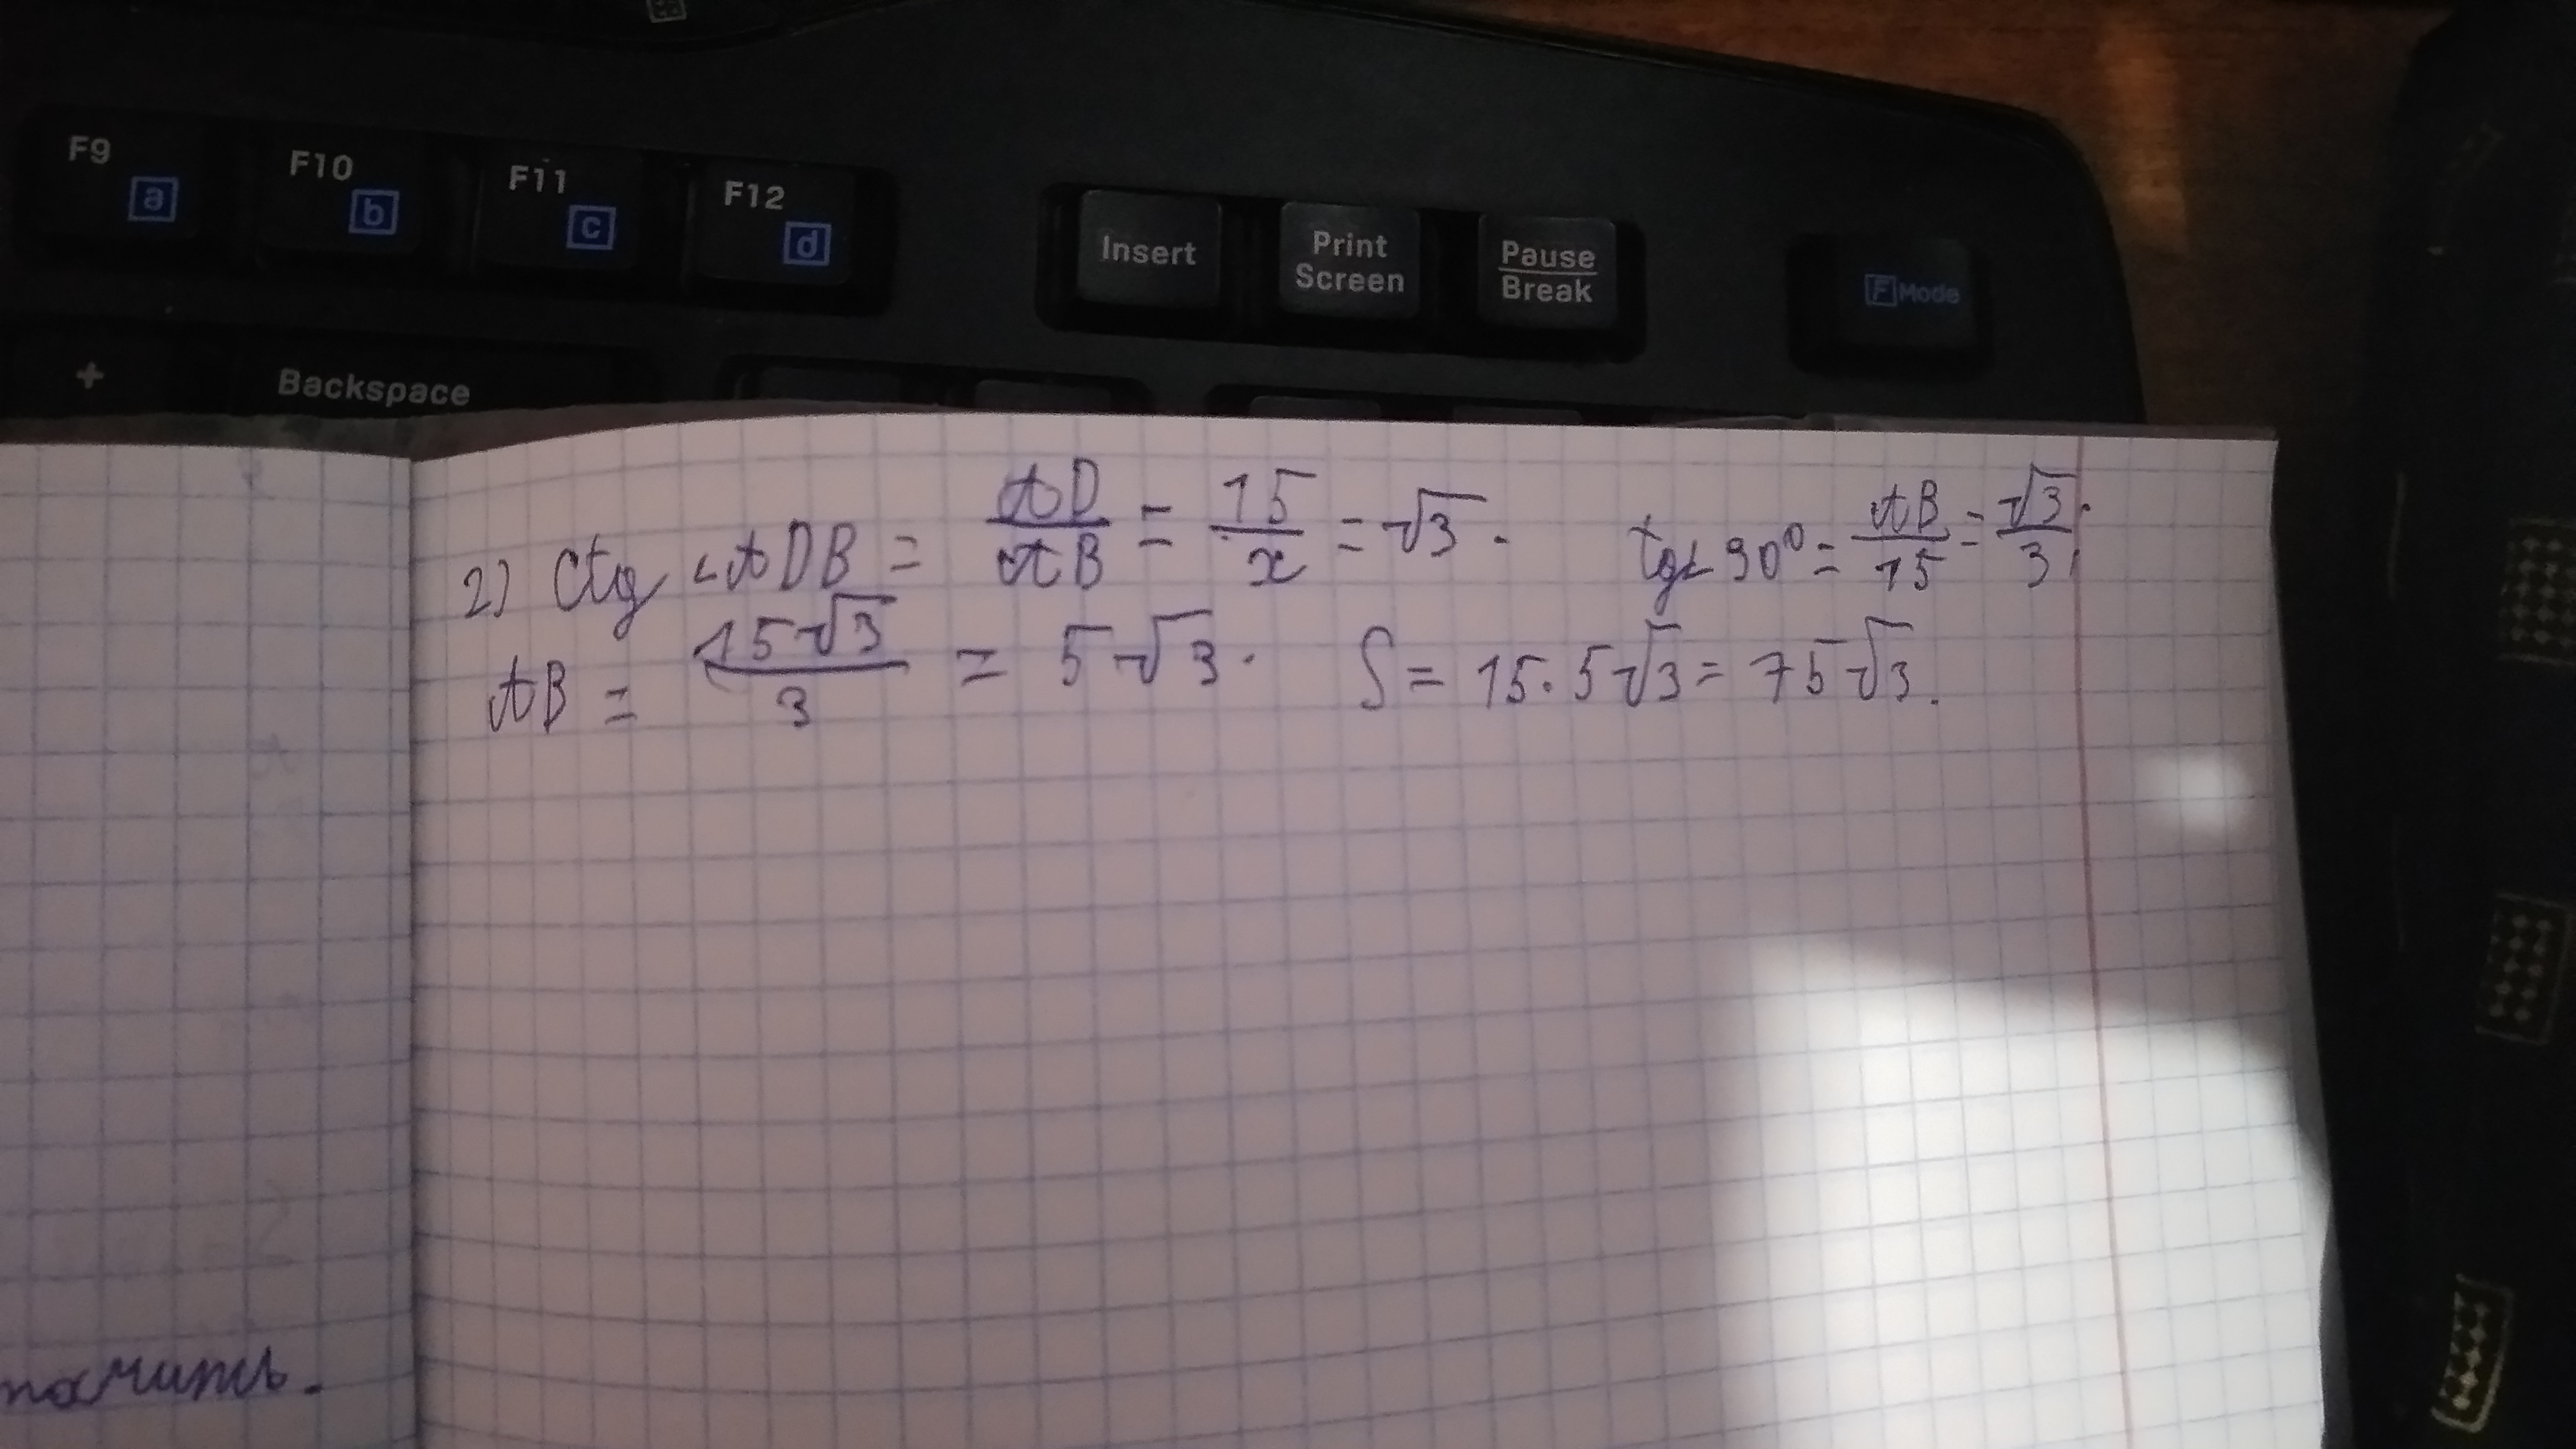 F9 a F10 b F11 c F12 d Insert Print Screen Pause Break F Mode
+ Backspace
2) Ctg ∠ADB = AD/AB = 15/x = √3. tg∠30° = AB/15 = √3/3.
AB = 15√3/3 = 5√3. S = 15·5√3 = 75√3.